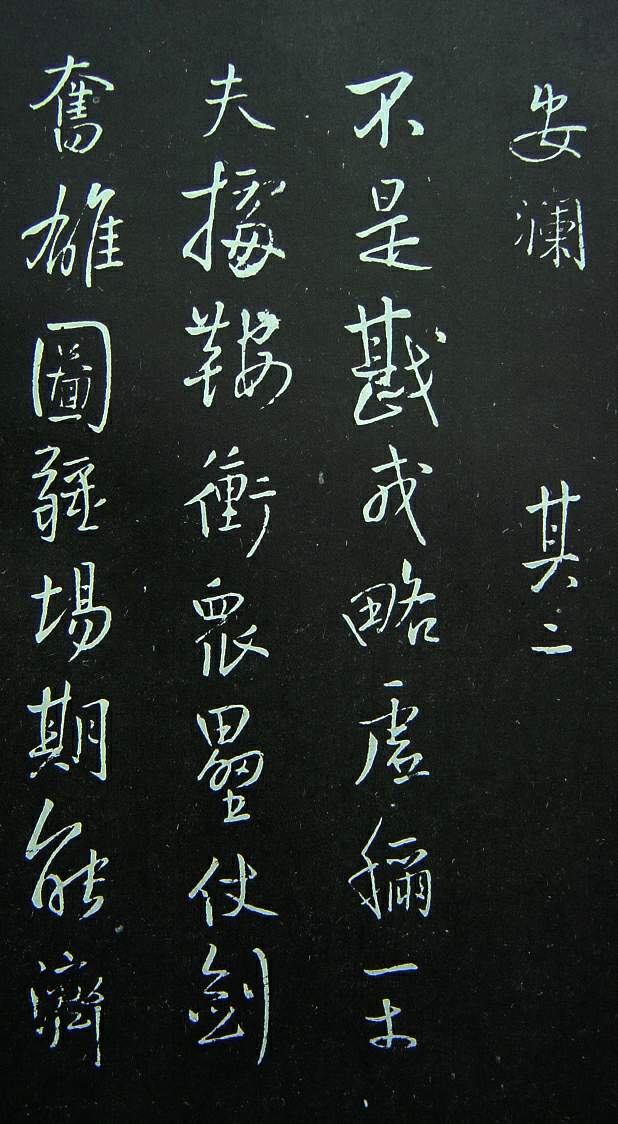 安瀾 其二
不是戡戎略虛稱一丈
夫據鞍衝眾壘仗劍
奮雄圖疆場期能濟